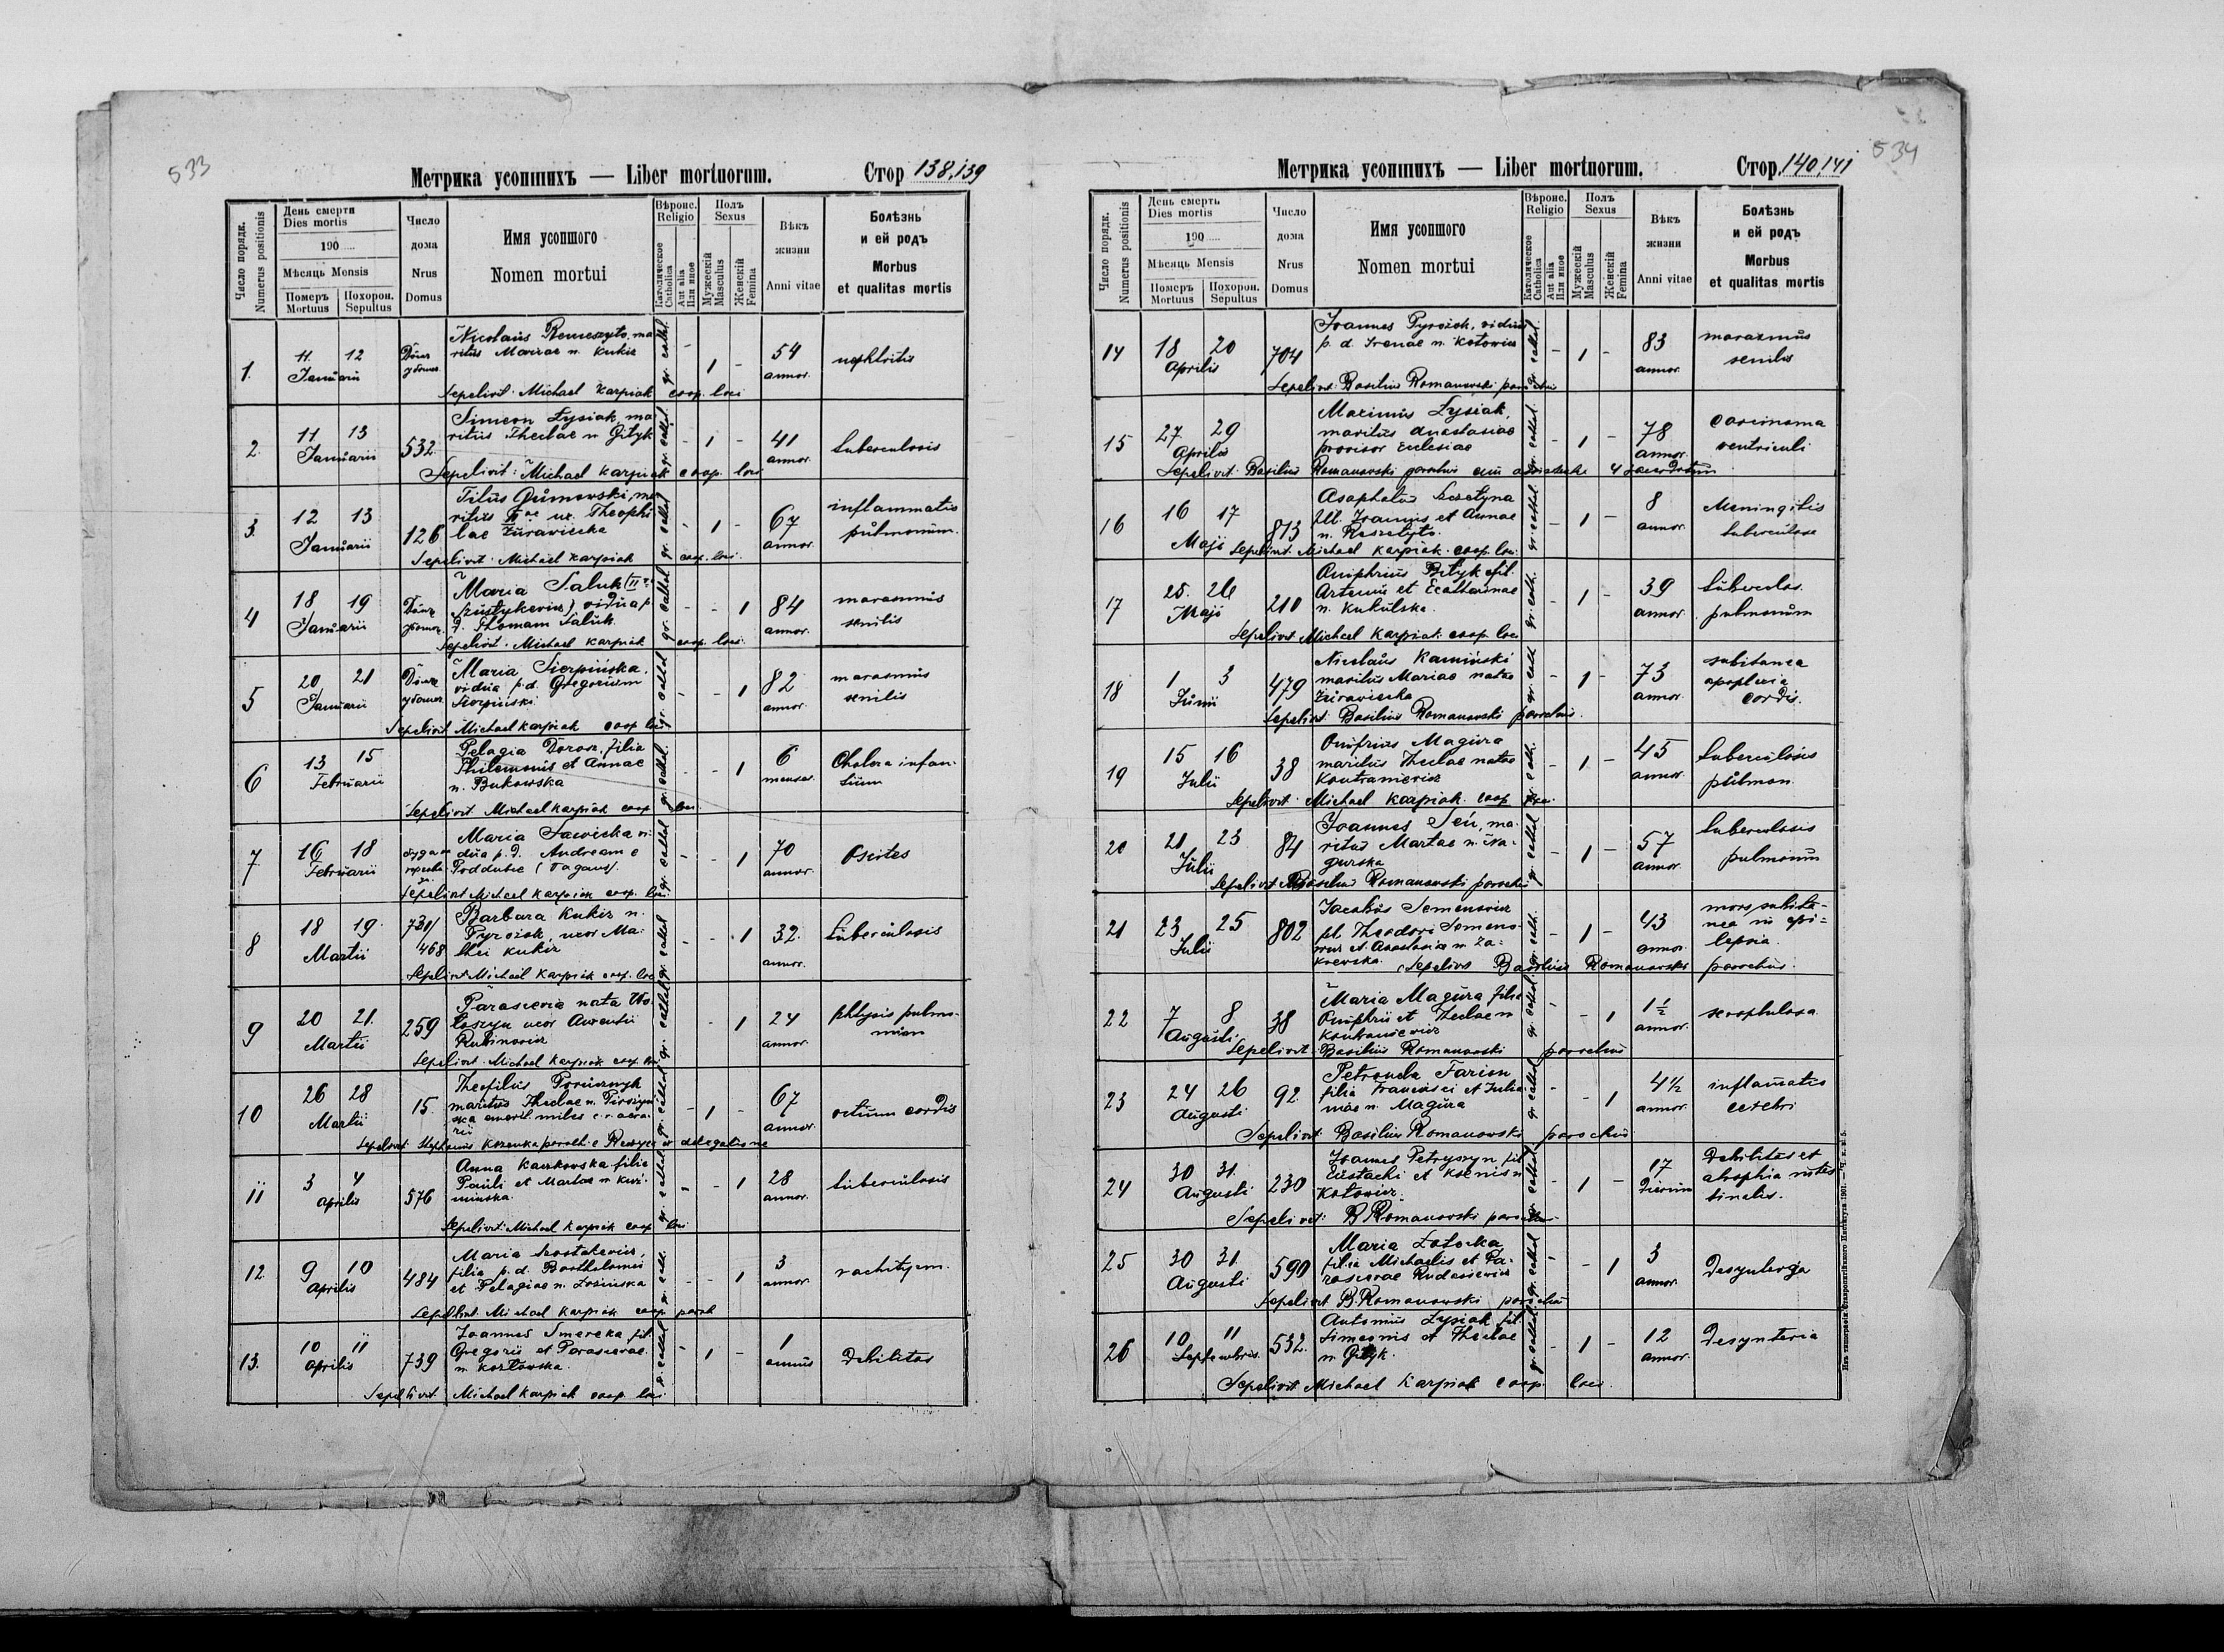 533
Метрика усопшихъ — Liber mortuorum.
Стор 138,139
Число порядк.
Numerus positionis
День смерти
Dies mortis
190
Мѣсяць Mensis
Померъ
Mortuus
Похорон.
Sepultus
Число
дома
Nrus
Domus
Имя усопшого
Nomen mortui
Вѣроис.
Religio
Католическое
Catholica
Aut alia
Или иное
Полъ
Sexus
Мужескій
Masculus
Женскій
Femina
Вѣкъ
жизни
Anni vitae
Болѣзнь
и ей родъ
Morbus
et qualitas mortis
1. 11. 12
Januarii
Nicolaus ma
ritus Mariae n. Kukiz
gr. cathol. - 1 - 54
annor.
nephtritis
Sepelivit. Michael Karpiak coop. loci
2. 11 13
Januarii
532.
Simeon Łysiak, ma
ritus Theclae n Gityk
gr. cathol. - 1 - 41
annor.
tuberculosis
Sepelivit: Michael Karpiak coop. loci
3. 12 13
Januarii
126
Titus ma
ritus II ae ux. Theophi
lae Żurawiecka
gr. cathol. - 1 - 67
annor.
inflammatis
pulmonum.
Sepelivit. Michael Karpiak coop. loci
4 18 19
Januarii
Maria Saluk
vidua p
d. Thomam Saluk
gr. cathol. - - 1 84
annor.
marasmus
senilis
Sepelivit. Michael Karpiak coop. loci
5 20 21
Januarii
Maria Sierpińska,
vidua p.d. Gregorium
Sierpiński
gr. cathol. - - 1 82
annor.
marasmus
senilis
Sepelivit Michael Karpiak coop loci
6 13 15
Februarii
Pelagia Dorosz, filia
Philemonis et Annae
n. Bukowska
gr. cathol. - - 1 6
menses.
Cholera infan-
tium
Sepelivit. Michael Karpiak coop loci
7 16 18
Februarii
Maria Sawicka vi
dua p. d. Andream e
Poddubce
gr. cathol. - - 1 70
annor.
Ascites
Sepelivit Michael Karpiak coop. loci
8 18 19.
Martii
731/
468
Barbara Kukiz n.
Pyrożok, uxor Ma-
thei Kukiz
gr. cathol. - - 1 32.
annor.
Tuberculosis
Sepelivit Michael Karpiak coop. loci
9 20 21.
Martii
259
Parascevia nata Wo
łoszyn uxor Awentii
Rubinowicz
gr. cathol. - 1 24
annor.
phtysis pulmo-
num
Sepelivit. Michael Karpiak coop. loci
10 26 28
Martii
15.
Theofilus
maritus Theclae n.
miles
gr. cathol. - 1 - 67
annor.
vitium cordis
Sepelivit. Stephanus parochi e ex delegatione
11 3 4
Aprilis
576
Anna Kaczkowska filia
Pauli et Marthae n
gr. cathol - - 1 28
annor.
tuberculosis
Sepelivit: Michael Karpiak coop loci
12. 9 10
Aprilis
484
Maria Szostakewicz,
filia p.d. Bartholomei
et Pelagiae n. Łosińska
gr. cath. - - 1 3
annor.
rachitysm.
Sepelivit. Michael Karpiak coop. paroch
13. 10 11
Aprilis
739
Joannes Smereka fil.
Gregorii et Parasceviae
n. Kozłowska.
gr. cathol - 1 - 1
annus
debilitas
Sepelivit Michael Karpiak coop. loci
534
Метрика усопшихъ — Liber mortuorum.
Стор. 140,141
Число порядк.
Numerus positionis
День смерть
Dies mortis
190
Мѣсяць Mensis
Померъ
Mortuus
Похорон.
Sepultus
Число
дома
Nrus
Domus
Имя усопшого
Nomen mortui
Вѣроис.
Religio
Католическое
Catholica
Aut alia
Или иное
Полъ
Sexus
Мужескій
Masculus
Женскій
Femina
Вѣкъ
жизни
Anni vitae
Болѣзнь
и ей родъ
Morbus
et qualitas mortis
14 18 20
Aprilis
704
Joannes Pyrożok, viduus
p. d. Irenae n. Kotowicz
gr. cathol. - 1 - 83
annor.
marazmus
senilis
Sepelivit: Basilius Romanowski parochus
15 27 29
Aprilis
Maximus Łysiak,
maritus Anastasiae
provisor Ecclesiae
gr. cathol. - 1 - 78
annor.
carcinoma
ventriculi
Sepelivit. Basilius Romanowski parochus cum 4 sacerdotum
16 16 17
Maji
813
Asaphatus Szczetyna
fil. Joannis et Annae
n. Reszetyło.
gr. cathol. - 1 - 8
annor.
Meningitis
tuberculosa
Sepelivit Michael Karpiak. coop. loci
17 25. 26
Maji
210
Oniphrius Bityk fil.
Artemii et Ecatharinae
n. Kukulska.
gr. cath. - 1 - 39
annor.
tuberculos.
pulmonum
Sepelivit Michael Karpiak coop loci
18 1 3
Junii
479
Nicolaus Kamiński
maritus Mariae nata
Żurawiecka
gr. cath. - 1 - 73
annor.
subitanea
apoplexia
cordis.
Sepelivit: Basilius Romanowski parochus.
19 15 16
Julii
38
Onifrius Magura
maritus Theclae nata
Kontraniewicz
gr. cath. - 1 - 45
annor.
tuberculosis
pulmon.
Sepelivit. Michael Karpiak. coop loci.
20 21 23
Julii
84
Joannes Seń, ma-
ritus Martae n.
gurska
gr. cathol. - 1 - 57
annor.
tuberculosis
pulmonum
Sepelivit Basilius Romanowski parochus
21 23 25
Julii
802
Jacobus Semenowicz
fil. Theodori Semeno-
wicz et Anastasiae n. Za-
krewska.
gr. cath. - 1 - 43
annor.
mors subita-
nea in epi-
lepsia.
Sepelivit Basilius Romanowski parochus.
22 7 8
Augusti
38
Maria Magura filia
Oniphrii et Theclae n
Kontraniewicz
gr. cathol. - - 1 1½
annor.
scrophulosa
Sepelivit: Basilius Romanowski parochus
23 24 26
Augusti
92.
Petronela Farion
filia Francisci et Julia-
nae n. Magura
gr. cathol - - 1 4½
annor.
inflamatio
cerebri
Sepelivit Basilius Romanowski parochus
24 30 31.
Augusti
230
Joannes Petryszyn fil
Eustachi et Kseniis n
Kotowicz.
gr. cathol. - 1 - 17
dierum
Debilitas et
atrophia intes
tinalis.
Sepelivit: B Romanowski parochus
25 30 31.
Augusti
590
Maria Łotocka
filia Michaelis et Pa-
rascevae Rudasiewicz
gr. cathol - - 1 3
annor.
Desynterja
Sepelivit B. Romanowski parochus
26 10 11
Septembris
532.
Antonius Łysiak fil.
Simeonis et Theclae
n Gityk.
gr. cathol. - 1 - 12
annor.
Desynteria
Sepelivit Michael Karpiak coop. loci.
Изъ типографіи Ставропигійского Института 1901.